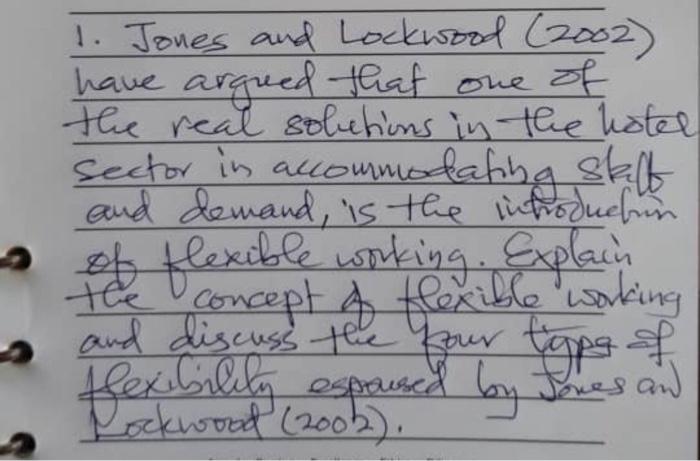 1. Jones and Lockwood (2002)
have argued that one of
the real solutions in the hotel
sector in accommodating staff
and demand, is the introduction
of flexible working. Explain
the concept of flexible working
and discuss the four types of
flexibility espoused by Jones and
Lockwood (2002).